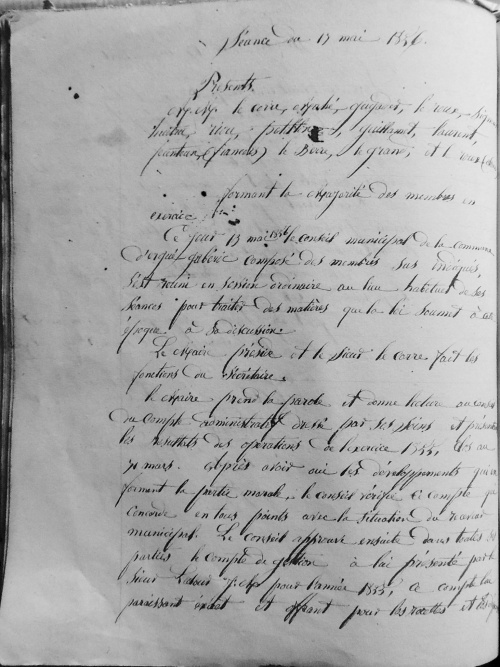 Séance du 17 mai 1856.
Présents
M.M. le corre, Mahé, quignec, le roux,
riou, guillermit, laurent,
jeantean, (francois) le Berre, le grand, et le roux
formant la Majorité des membres en
exercice
Ce jour 13 mai 1856 le conseil municipal de la commune
d'ergué-gabéric composé des membres sus indiqués,
s'est réuni en session ordinaire au lieu habituel de ses
séances pour traiter des matières que la loi soumet à cette
époque à sa discussion.
Le Maire préside et le sieur le corre fait les
fonctions de sécrétaire.
le Maire prend la parole et donne lecture au conseil
du compte administratif dressé par ses soins et présentant
les résultats des opérations de l'exercice 1855, clos au
31 mars. après avoir ouï les développements qui en
forment la partie morale, le conseil vérifie ce compte qui
concorde en tous points avec la situation du receveur
municipal. Le conseil approuve ensuite dans toutes ses
parties le compte de gestion à lui présenté par le
sieur pour l'année 1855, ce compte lui
paraissant exact et offrant pour les recettes et les